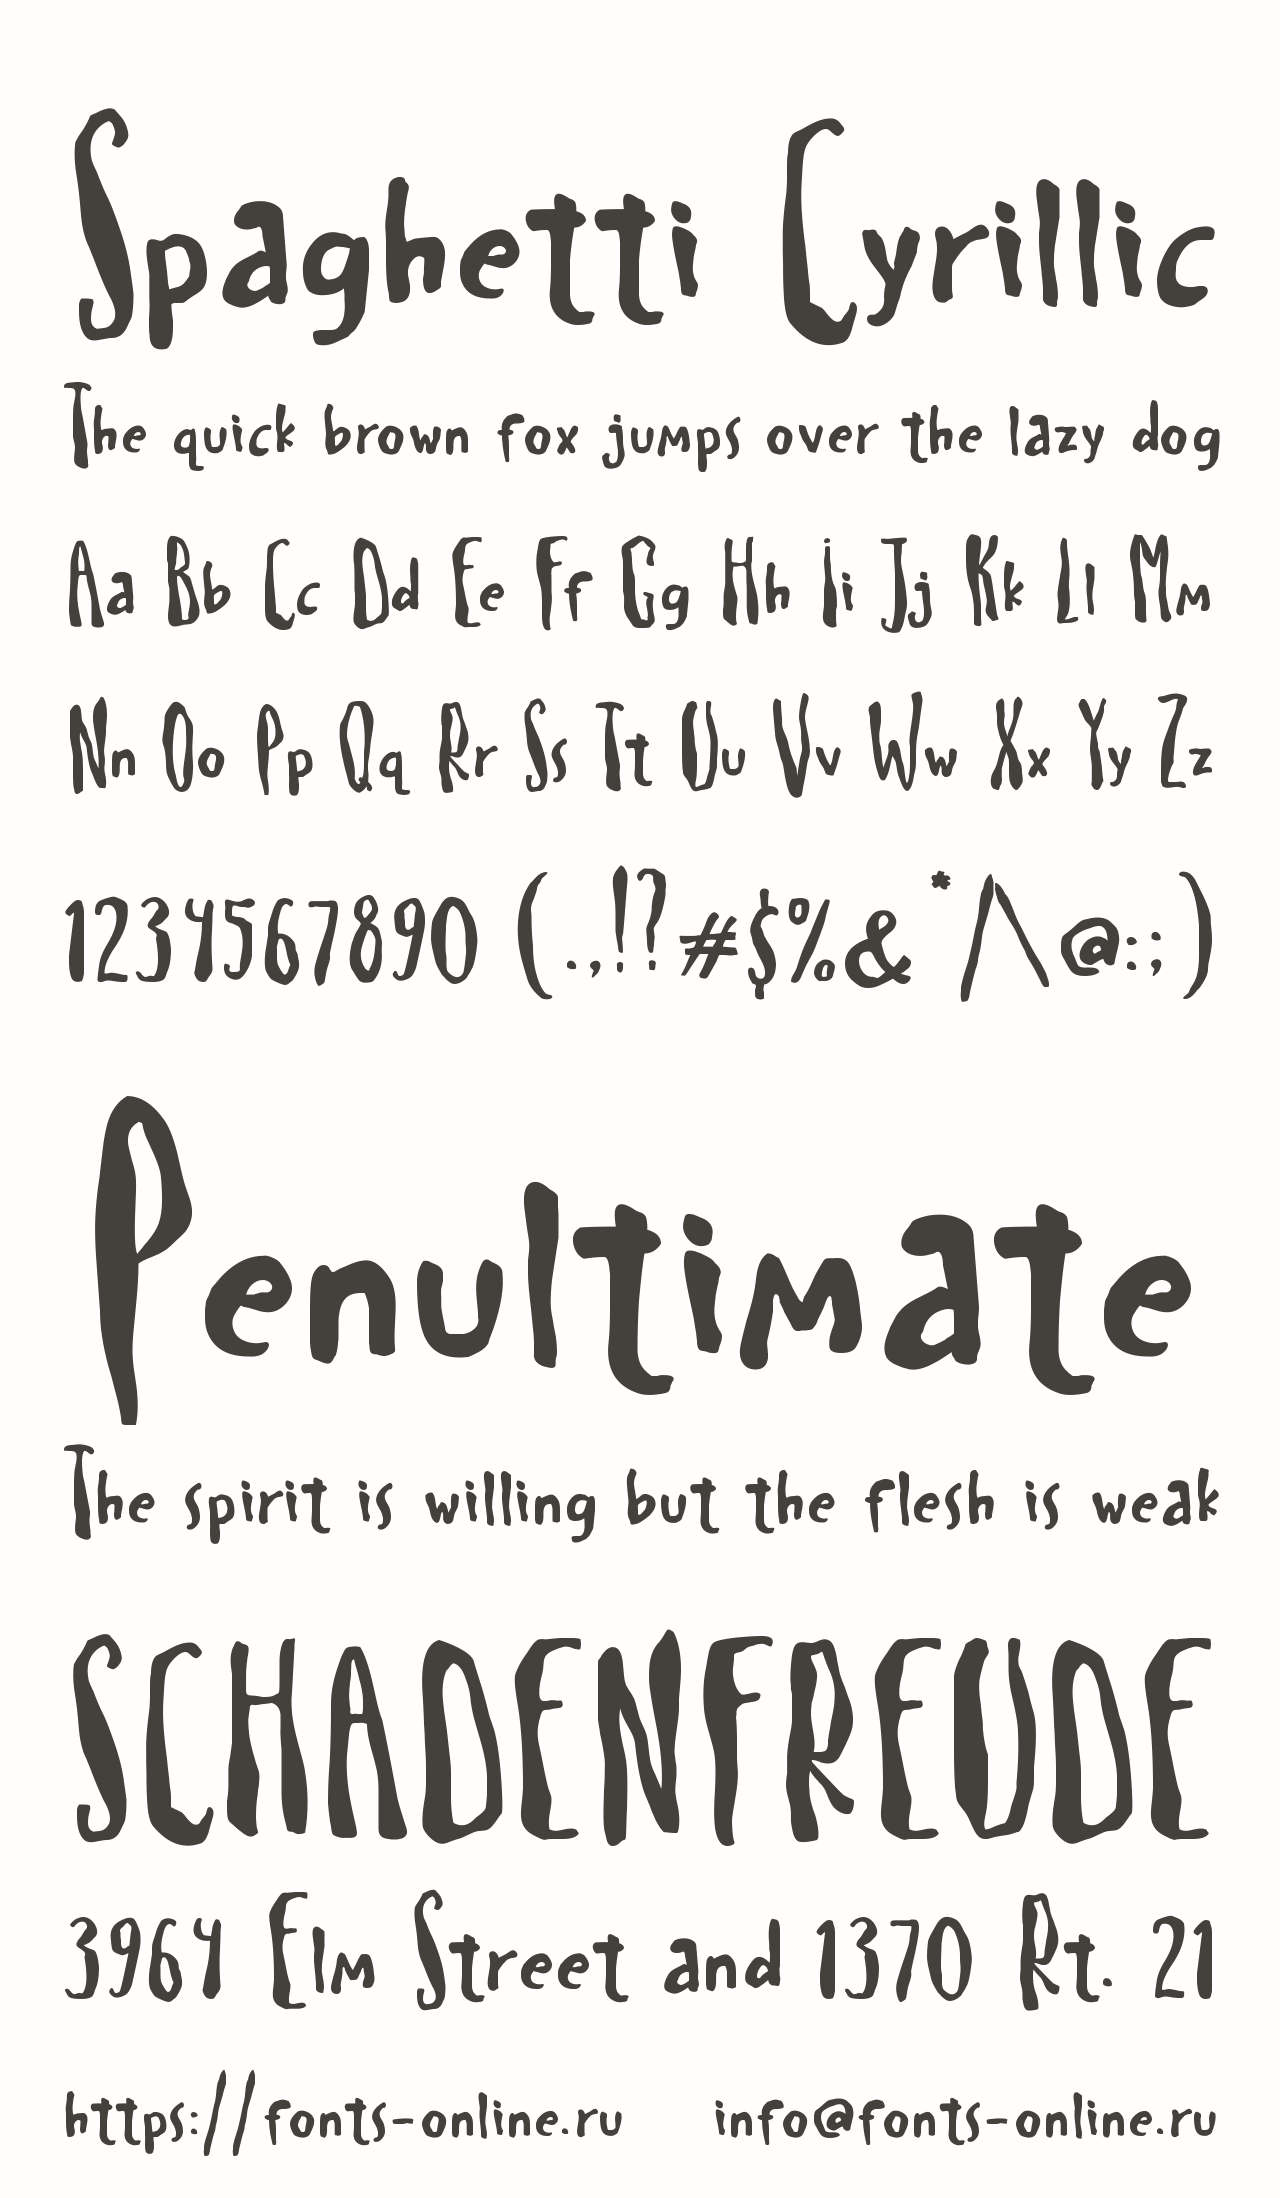 Spaghetti Cyrillic
The quick brown fox jumps over the lazy dog
Aa Bb Cc Dd Ee Ff Gg Hh Ii Jj Kk Ll Mm
Nn Oo Pp Qq Rr Ss Tt Uu Vv Ww Xx Yy Zz
1234567890 (.,!?#$%&*/\@:;)
Penultimate
The spirit is willing but the flesh is weak
SCHADENFREUDE
3964 Elm Street and 1370 Rt. 21
https://fonts-online.ru info@fonts-online.ru